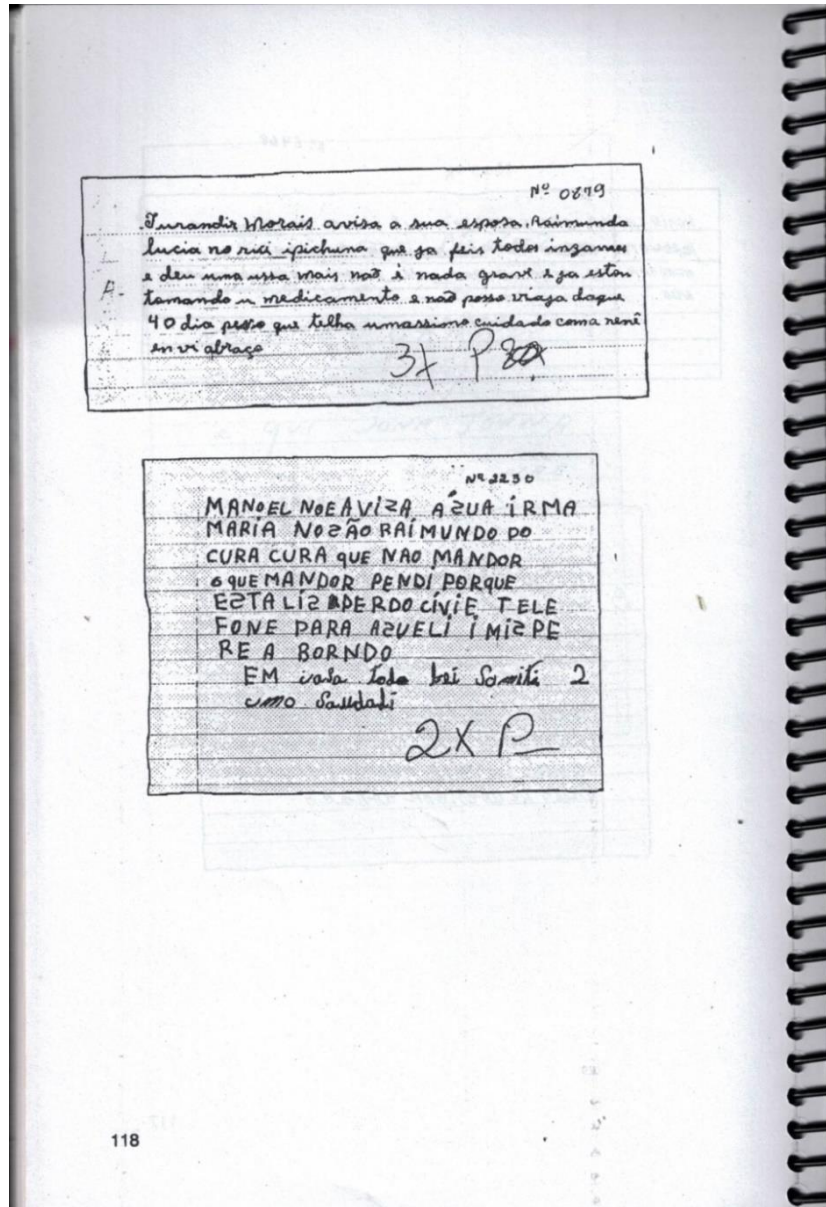 Nº 0879
Jurandir Morais avisa a sua esposa, Raimunda
lucia no rici ipichuna que ja feis todos inzames
e deu uma ussa mais naõ i nada grave e ja estou
A- tomando u medicamento e naõ posso viaja daque
40 dia pesso que telha umassimo cuidado coma nenê
en vi abraço
3x P
Nº 2230
MANOEL NOE AVIZA A SUA IRMA
MARIA NO SÃO RAIMUNDO DO
CURA CURA QUE NAO MANDOR
O QUE MANDOR PENDI PORQUE
ESTA LIS DERDO CIVIE TELE
FONE PARA ASUELI I MISPE
RE A BORNDO
EM casa todo bei Somiti 2
umo Saudadi
2X P
118